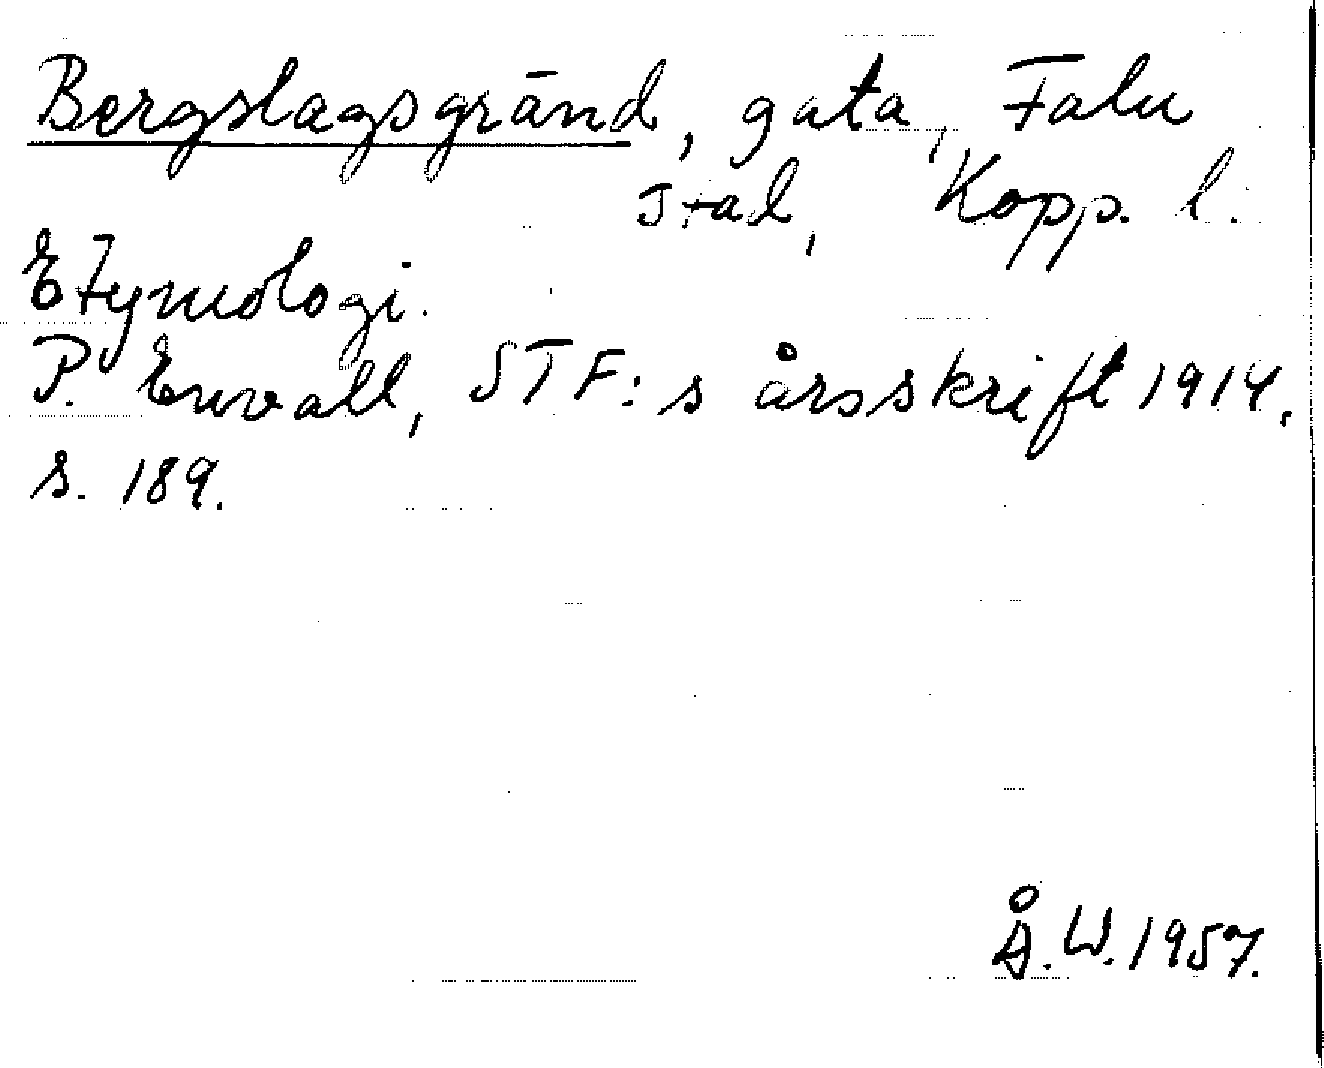 Bergslagsgränd, gata, Falu
stad, Kopp. l.
Etymologi.
P. Envall, STF:s årsskrift 1914,
s. 189.
Å.W. 1957.